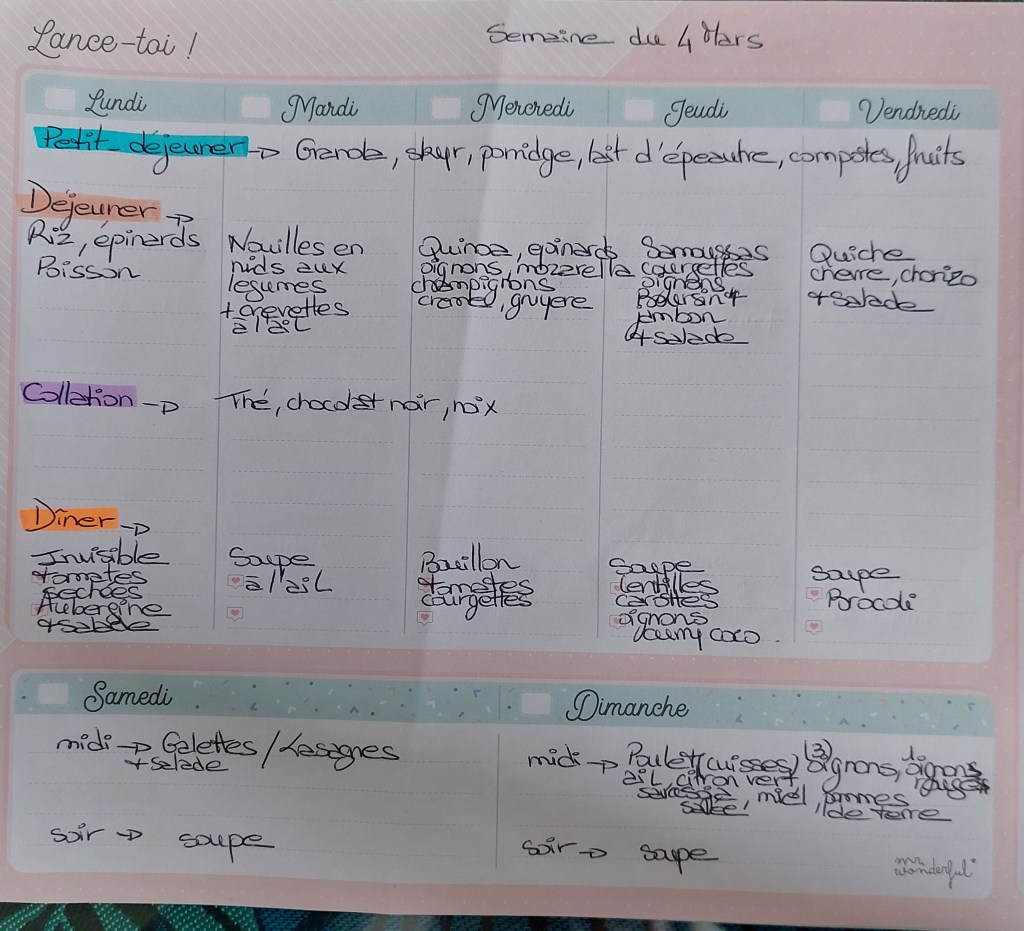 Lance-toi !
Semaine du 4 Mars
Lundi
Mardi
Mercredi
Jeudi
Vendredi
Petit déjeuner → Granola, skyr, porridge, lait d'épeautre, compotes, fruits
Déjeuner →
Riz, épinards
Poisson
Nouilles en
nids aux
légumes
+ crevettes
à l'ail
Quinoa, épinards
oignons, mozarella
champignons
gruyere
Samoussas
courgettes
oignons
Boursin
jambon
+ salade
Quiche
chevre, chorizo
+ salade
Collation → Thé, chocolat noir, noix
Dîner →
Invisible
tomates
sechées
Aubergine
+ salade
Soupe
à l'ail
Bouillon
tomates
courgettes
Soupe
lentilles
carottes
oignons
curry coco
soupe
Brocoli
Samedi
midi → Galettes / Lasagnes
+ salade
soir → soupe
Dimanche
midi → Poulet (cuisses) (3) oignons, 1 oignons
ail, citron vert rouges
sauce soja
salée, miel, pommes
de terre
soir → soupe
mr. wonderful*